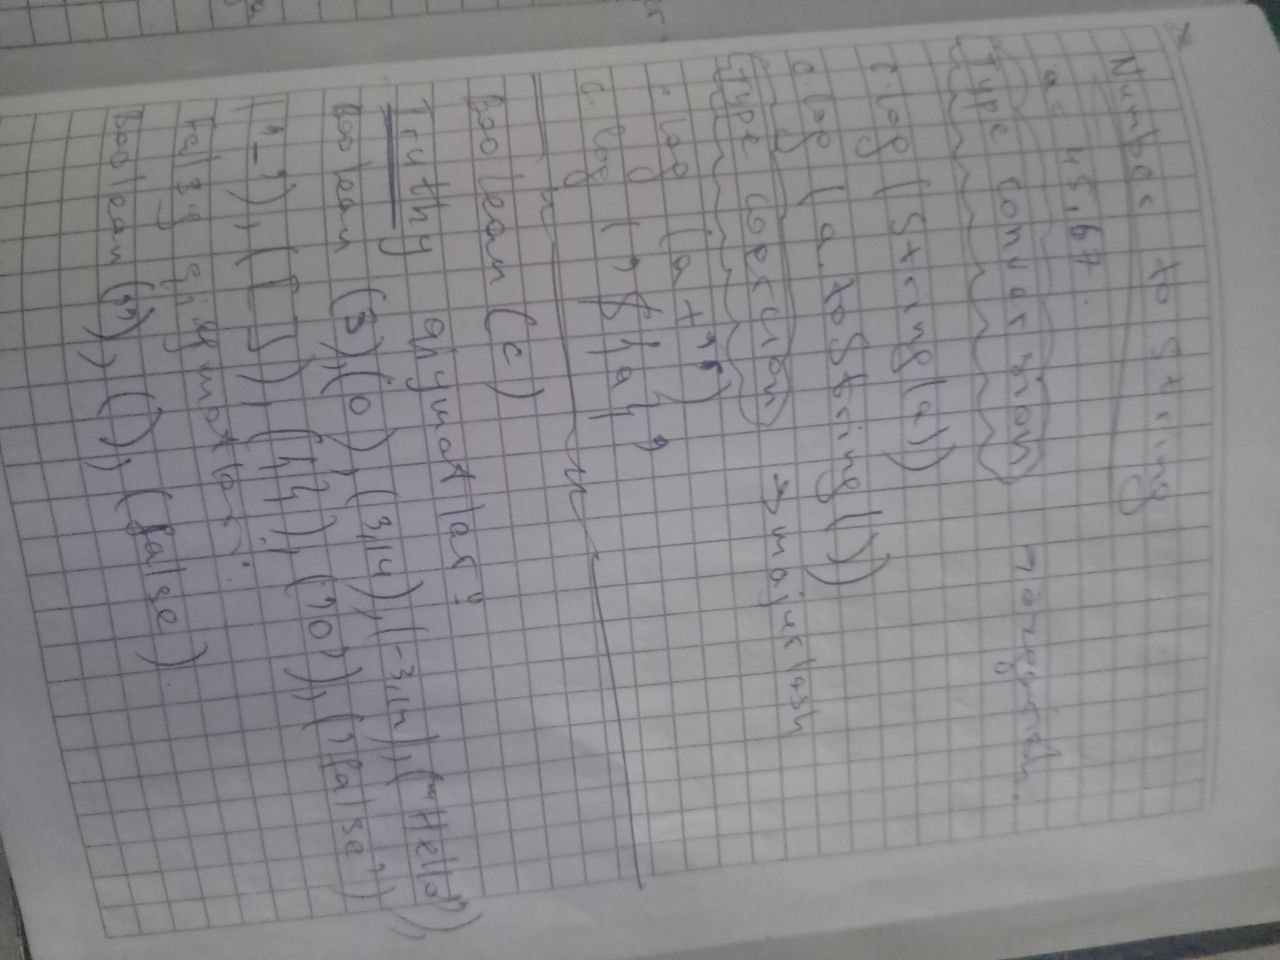 Number to String
a = 45,67.
Type Conversion → o'zgarish.
c.log (String(a))
c.log (a.toString())
Type coercion → majurlash
c.log (a+"")
c.log (`${a}`)
Boolean (c)
Truthy qiymatlar:
Boolean (3), (0), (3,14), (-3,14), ("Hello"),
(" "), ([]), ({}), ('0'), ('false'),
Falsy qiymatlar:
Boolean (""), (''), (false)